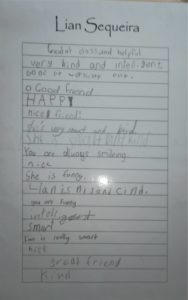 Lian Sequeira
Great class and helpful
very kind and inteligent
one.
a Good friend
HAPPY
nice friend!
very smart and kind
She
You are always smileing
nice
She is funny.
Lian is nis and cind.
you are funny
intelligent
smart
Lian is really smart
nice
great friend
kind